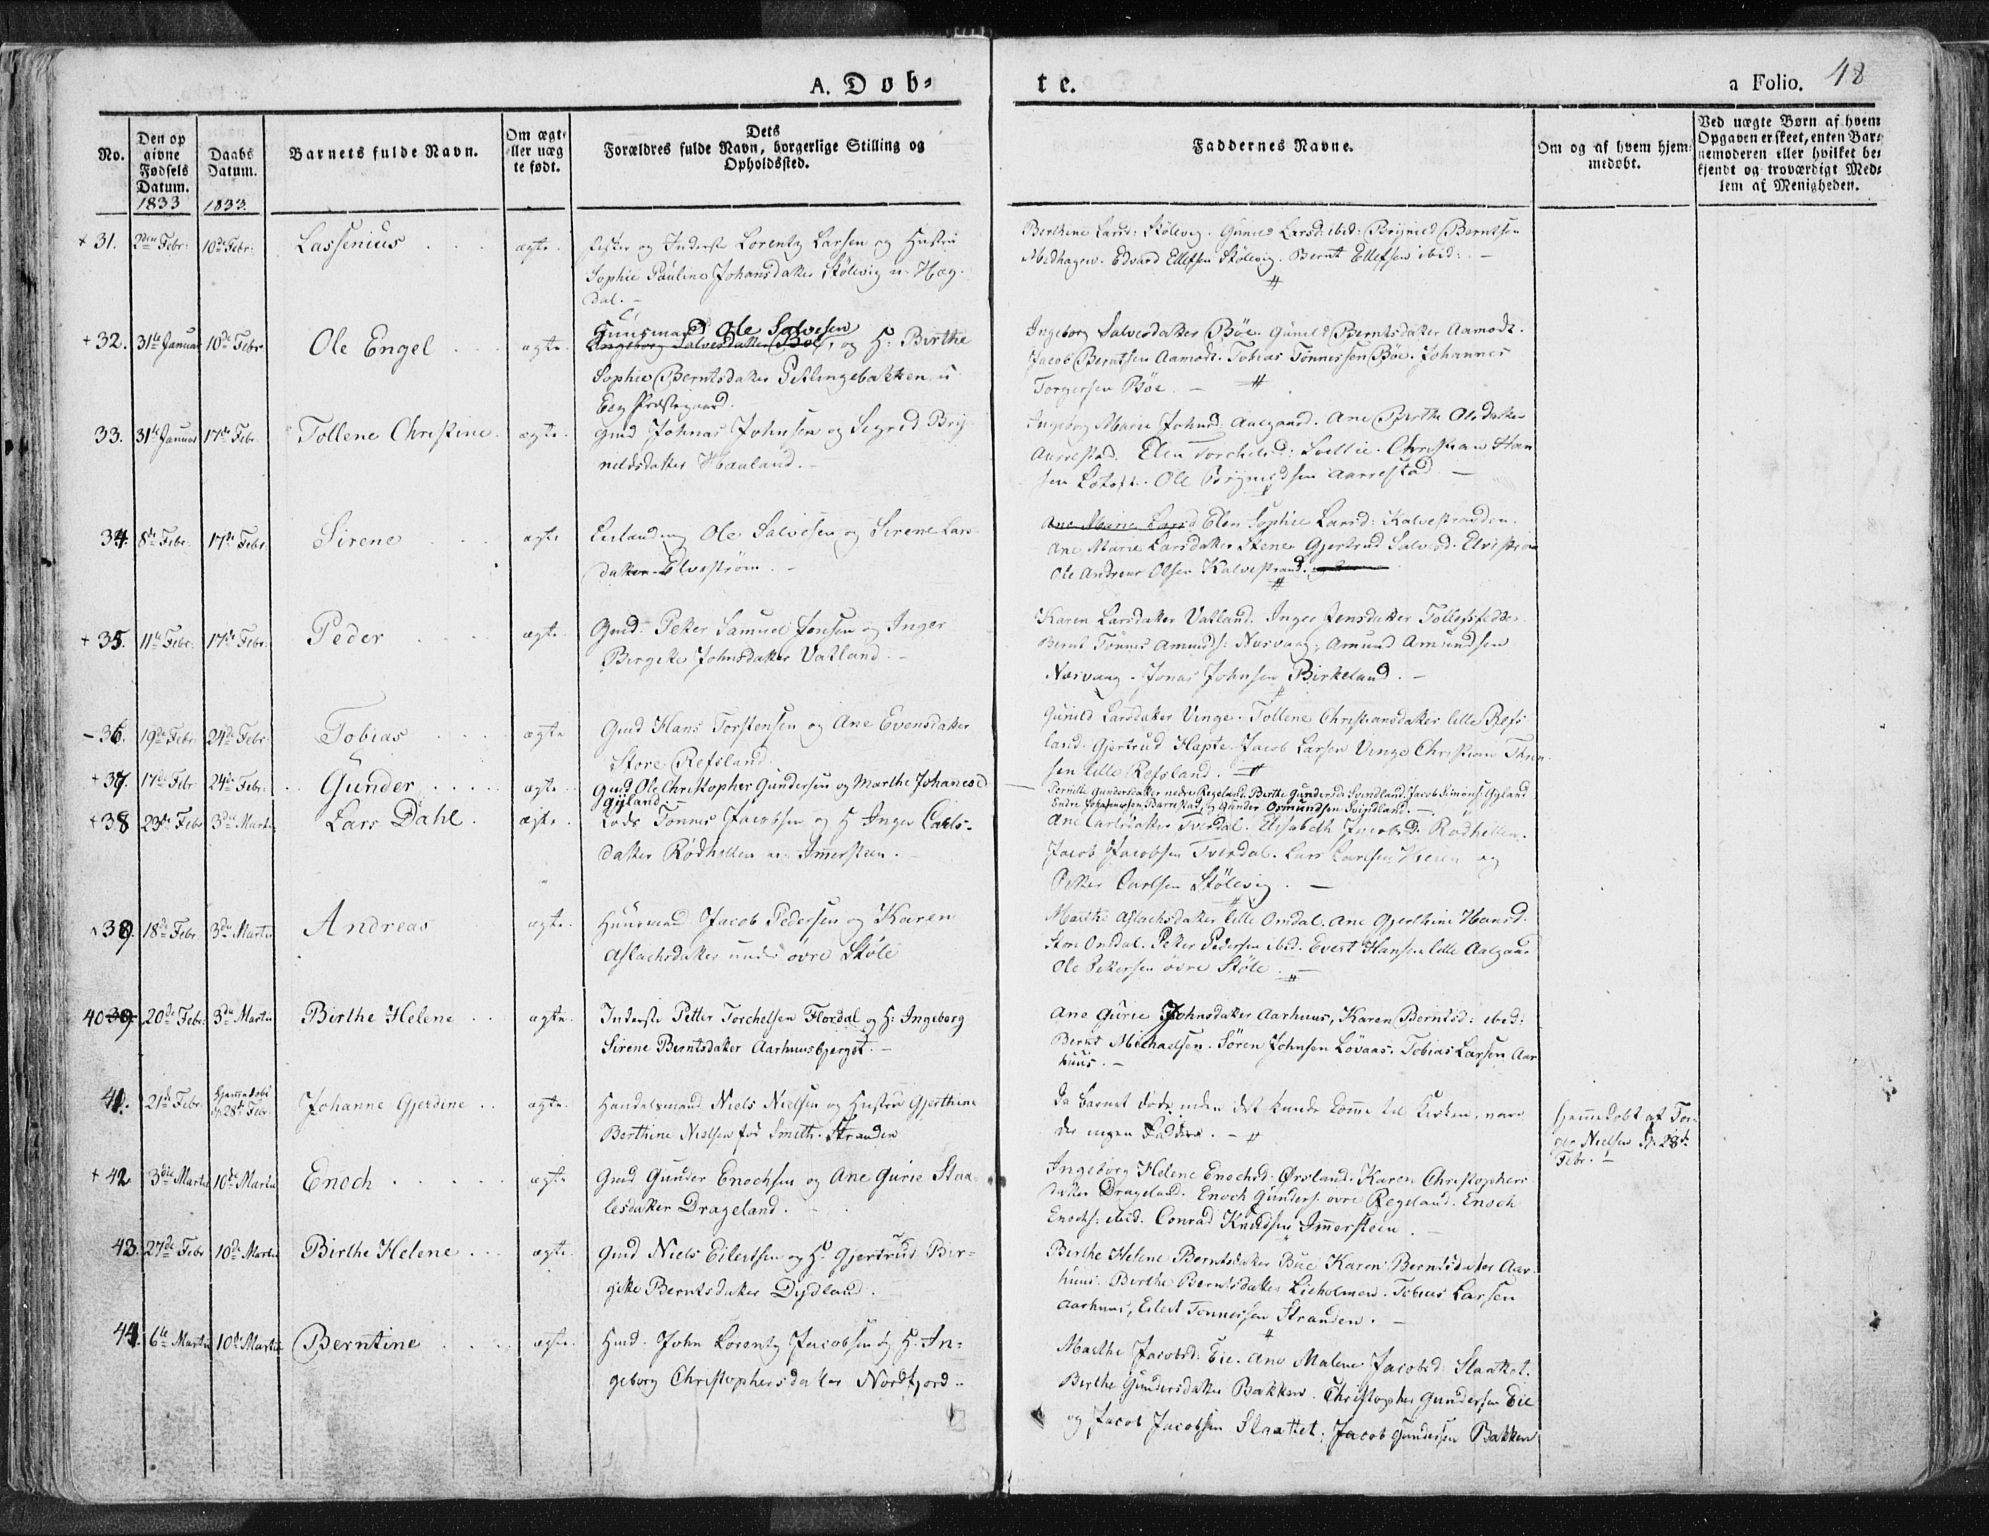 A. Dob=
te.
a Folio. 48
No.
Den opgivne Fødsels Datum. 1833
Daabs Datum. 1833.
Barnets fulde Navn.
Om ægte eller uægte født.
Dets Forældres fulde Navn, borgerlige Stilling og Opholdssted.
Faddernes Navne.
Om og af hvem hjemmedøbt.
Ved uægte Børn af hvem Opgaven er skeet, enten Barnemoderen eller hvilket bekjendt og troværdigt Medlem af Menigheden.
+ 31. 2den Febr. 10de Febr. Lassenius ægte og Inderste Lorentz Larsen og Hustru
Sophie Pauline Johansdatter Stølevig u. Hæg-
dal.
Berthine Larsd: Stølevig. Gunild Larsd. ibid: Brynild Berntsen
Edvard Ellefsen Stølevig. Bernt Ellefsen ibid:
+ 32. 31te Januar 10de Febr Ole Engel ægte Huusmand Ole Salvesen
Ingeborg Salvesdatter Bøe, og H: Birthe
Sophie Berntsdatter Getlingebakken u
Eeg Præstegaard.
Ingeborg Salvesdatter Bøe. Gunild Berntsdatter Aamodt.
Jacob Berntsen Aamodt. Tobias Tønnessen Bøe. Johannes
Torgersen Bøe.
33. 31te Januar 17de Febr Tollene Christine ægte Gmd Johnas Johnsen og Segrid Bry-
nildsdatter Haaland.
Ingeborg Marie Johnsd. Aalgaard. Ane Berthe Olsdatter
Aarrestad. Elen Torchelsd: Christian Han
sen Ole Brynildsen Aarrestad
34. 8de Febr. 17de Febr Sirene ægte Ole Salvesen og Sirene Lars-
datter Elvestrøm.
Ane Marie Larsd Elen Sophie Larsd: Kalvestranden.
Ane Marie Larsdatter Stene Gjertrud Salvesd. Elvestrøm
Ole Andreas Olsen Kalvestrand.
+ 35. 11te Febr. 17de Febr. Peder ægte Gmd. Peter Samuel Jensen og Inger
Bergite Johnsdatter Vatland.
Karen Larsdatter Vatland. Inger Jensdatter
Bernt Tønnes Amunds: Næsvaag, Amund Amundsen
Næsvaag. Jonas Johnsen Birkeland.
- 36. 19de Febr 24de Febr Tobias ægte Gmd Hans Torstensen og Ane Evensdatter
Store Refsland.
Gunild Larsdatter Vinge. Tollene Christiansdatter lille Refs
land. Gjertrud Jacob Larsen Vinge Christian
sen lille Refsland.
+ 37. 17de Febr 24de Febr. Gunder ægte Gmd Ole Christopher Gundersen og Marthe Johannesd
Gyland
Gundersdatter nedre Regeland. Berthe Gundersda Svindland. Jacob Simons. Gyland
Endre Johannesen og Gunder Osmundsen Svindland.
+ 38 23de Febr 3die Martii Lars Dahl ægte Lods Tønnes Jacobsen og H Inger Carls-
datter Rødhellen u. Imersteen.
Ane Carlsdatter Tverdal. Elisabeth Jacobsd. Rødhellen.
Jacob Jacobsen Tverdal. Lars Carlsen og
Petter Carlsen Stølevig.
39. 18de Febr. 3die Martii Andreas ægte Huusmand Jacob Pedersen og Karen
Aslachsdatter under øvre Støle
Marthe Aslachsdatter lille Onsdal. Ane Gjerthine Hansd.
Onsdal. Peter Pedersen ibid. Evert Hansen lille
Ole Petersen øvre Støle.
40 39. 20de Febr. 3die Martii Birthe Helene ægte Inderste Petter Torchelsen Flordal og H: Ingeborg
Sirene Berntsdatter Aarhuusbjerget.
Ane Gurie Johnsdatter Aarhuus, Karen Berntsd: ibid:
Bernt Michaelsen. Søren Johnsen Løvaas. Tobias Larsen Aar
huus.
41. 21de Febr. Hjemmedøbt d. 28de Febr. Johanne Gjerdine ægte Handelsmand Niels Nielsen og Hustru Gjerthine
Berthine Nielsen fød Smith. Stranden
Da Barnet døde inden det kunde komme til Kirken, vare
der ingen Faddere.
Hjemmedøbt af
Nielsen d. 28de
Febr.
+ 42 3die Martii 10de Martii Enoch ægte Gmd Gunder Enochsen og Ane Gurie Staa-
lesdatter Drageland.
Ingeborg Helene Enochsd. Ørsland. Karen Christophers
datter Drageland. Enoch Gunders. øvre Regeland. Enoch
Enochs: ibid. Conrad Knudsen Imersteen.
43. 27de Febr 10de Martii Birthe Helene ægte Gmd Niels Eilertsen og H: Gjertrud Bir-
gitte Berntsdatter Dydland.
Birthe Helene Berntsdatter Bue Karen Berntsdatter Aar
huus. Birthe Berntsdatter Lieholmen. Tobias Larsen
Aarhuus, Eilert Tønnessen Stranden.
44. 6te Martii 10de Martii Berntine ægte Hmd. John Lorentz Jacobsen og H: In-
geborg Christophersdatter Nordfjord
Marthe Jacobsd: Eie. Ane Malene Jacobsd: Slaattet.
Birthe Gundersdatter Bakken. Christopher Gundersen Eie
og Jacob Jacobsen Slaattet, Jacob Gundersen Bakken